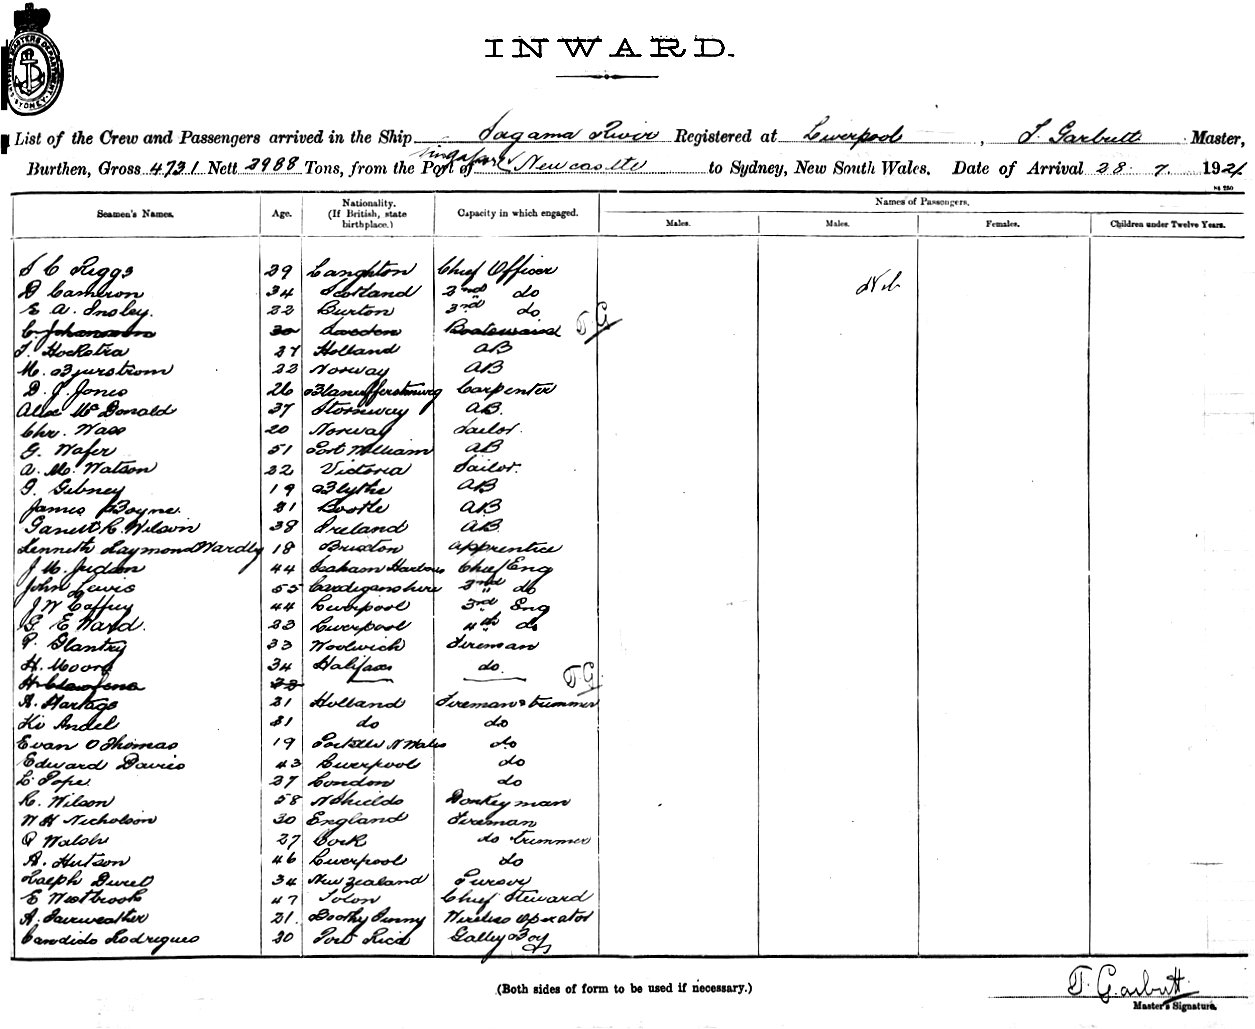 INWARD.
List of the Crew and Passengers arrived in the Ship Sagama River Registered at Liverpool, T. Garbutt Master,
Burthen, Gross 4731 Nett 2988 Tons, from the Port of Singapore Newcastle to Sydney, New South Wales. Date of Arrival 28. 7. 1921
Seamen's Names. Age. Nationality. (If British, state birthplace.) Capacity in which engaged. Names of Passengers.
Males. Males. Females. Children under Twelve Years.
S C Riggs 29 Langhton Chief Officer
D Cameron 34 Scotland 2nd do Nil
E A. Insley. 22 Burton 3rd do
C. Johansson 30 Sweden Boatswain T G
T. Hockstra 27 Holland AB
M. Bjurstrom 23 Norway AB
D. J. Jones 26 Carpenter
Alex McDonald 37 Stornway AB.
Chr. Wass 20 Norway Sailor.
G. Wafer 51 Fort William AB
A. M. Watson 22 Victoria Sailor.
J. Gibney 19 Blythe AB
James Boyne. 21 Bootle AB
Garrett R. Wilson 38 Ireland AB
Kenneth Raymond Wardley 18 Brixton Apprentice
J M. Judson 44 Seaham Harbour Chief Eng
John Lewis 55 Cardiganshire 2nd do
J W Caffrey 44 Liverpool 3rd Eng
G E Ward. 23 Liverpool 4th do
P. Glantry 33 Woolwich Fireman
H. Moore 34 Halifax do.
T. G.
A. Hartogs 21 Holland Fireman & trimmer
Ki Andel 31 do do
Evan O Thomas 19 N Wales do
Edward Davies 43 Liverpool do
L. Pope. 27 London do
R. Wilson 58 N Shields Donkeyman
W H Nicholson 30 England Fireman
P Walsh 27 Cork do trimmer
A. Hutson 46 Liverpool do
Ralph Duret 34 New Zealand Purser
E Westbrook 47 Tolon Chief Steward
A. Fairweather 21. Wireless Operator
Candido Rodrigues 20 Port Rica Galley Boy
(Both sides of form to be used if necessary.)
T. Garbutt
Master's Signature.